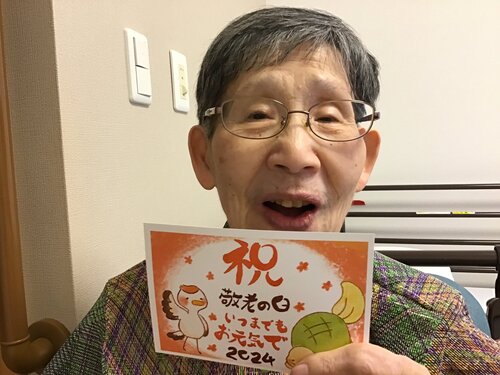 祝
敬老の日
いつまでも
お元気で
2024